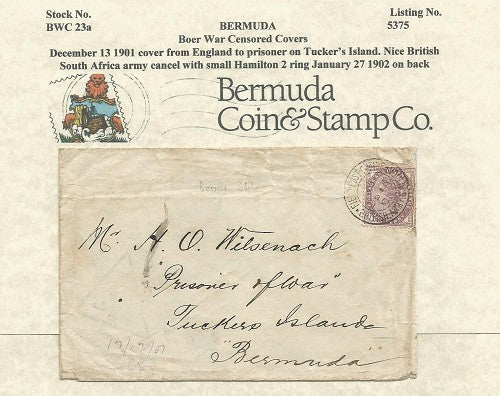 Stock No.
BWC 23a
BERMUDA
Boer War Censored Covers
Listing No.
5375
December 13 1901 cover from England to prisoner on Tucker's Island. Nice British
South Africa army cancel with small Hamilton 2 ring January 27 1902 on back
Bermuda
Coin&Stamp Co.
Mr H. O. Witsenach
"Prisoner of War"
Tuckers Islands
"Bermuda"